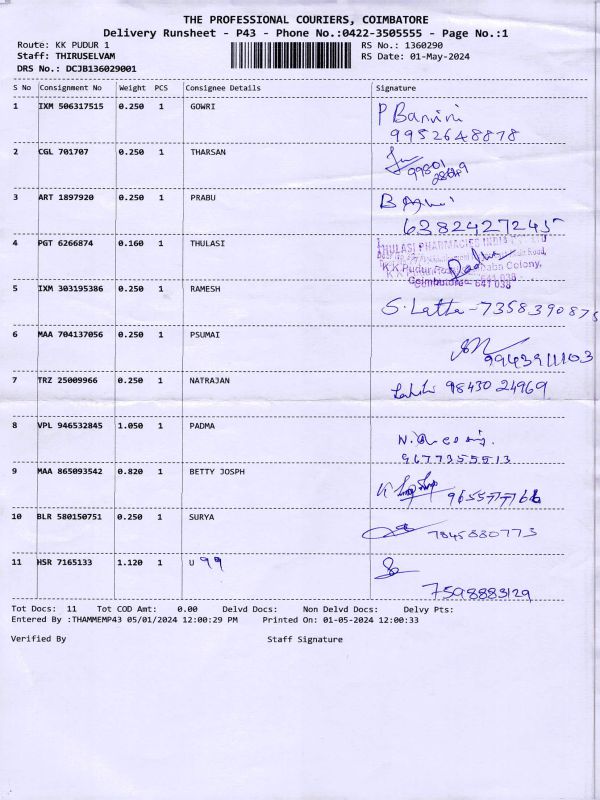 THE PROFESSIONAL COURIERS, COIMBATORE
Delivery Runsheet - P43 - Phone No.:0422-3505555 - Page No.:1
Route: KK PUDUR 1 RS No.: 1360290
Staff: THIRUSELVAM RS Date: 01-May-2024
DRS No.: DCJB136029001
S No Consignment No Weight PCS Consignee Details Signature
1 IXM 506317515 0.250 1 GOWRI
9952648878
2 CGL 701707 0.250 1 THARSAN
3 ART 1897920 0.250 1 PRABU
6382427245
4 PGT 6266874 0.160 1 THULASI
THULASI PHARMACIES INDIA PVT LTD
Coimbatore - 641 038
5 IXM 303195386 0.250 1 RAMESH
S. Latta - 7358390875
6 MAA 704137056 0.250 1 PSUMAI
9943911103
7 TRZ 25009966 0.250 1 NATRAJAN
9843024969
8 VPL 946532845 1.050 1 PADMA
9677355513
9 MAA 865093542 0.820 1 BETTY JOSPH
10 BLR 580150751 0.250 1 SURYA
7845880773
11 HSR 7165133 1.120 1 U 99
7598883129
Tot Docs: 11 Tot COD Amt: 0.00 Delvd Docs: Non Delvd Docs: Delvy Pts:
Entered By :THAMMEMP43 05/01/2024 12:00:29 PM Printed On: 01-05-2024 12:00:33
Verified By Staff Signature